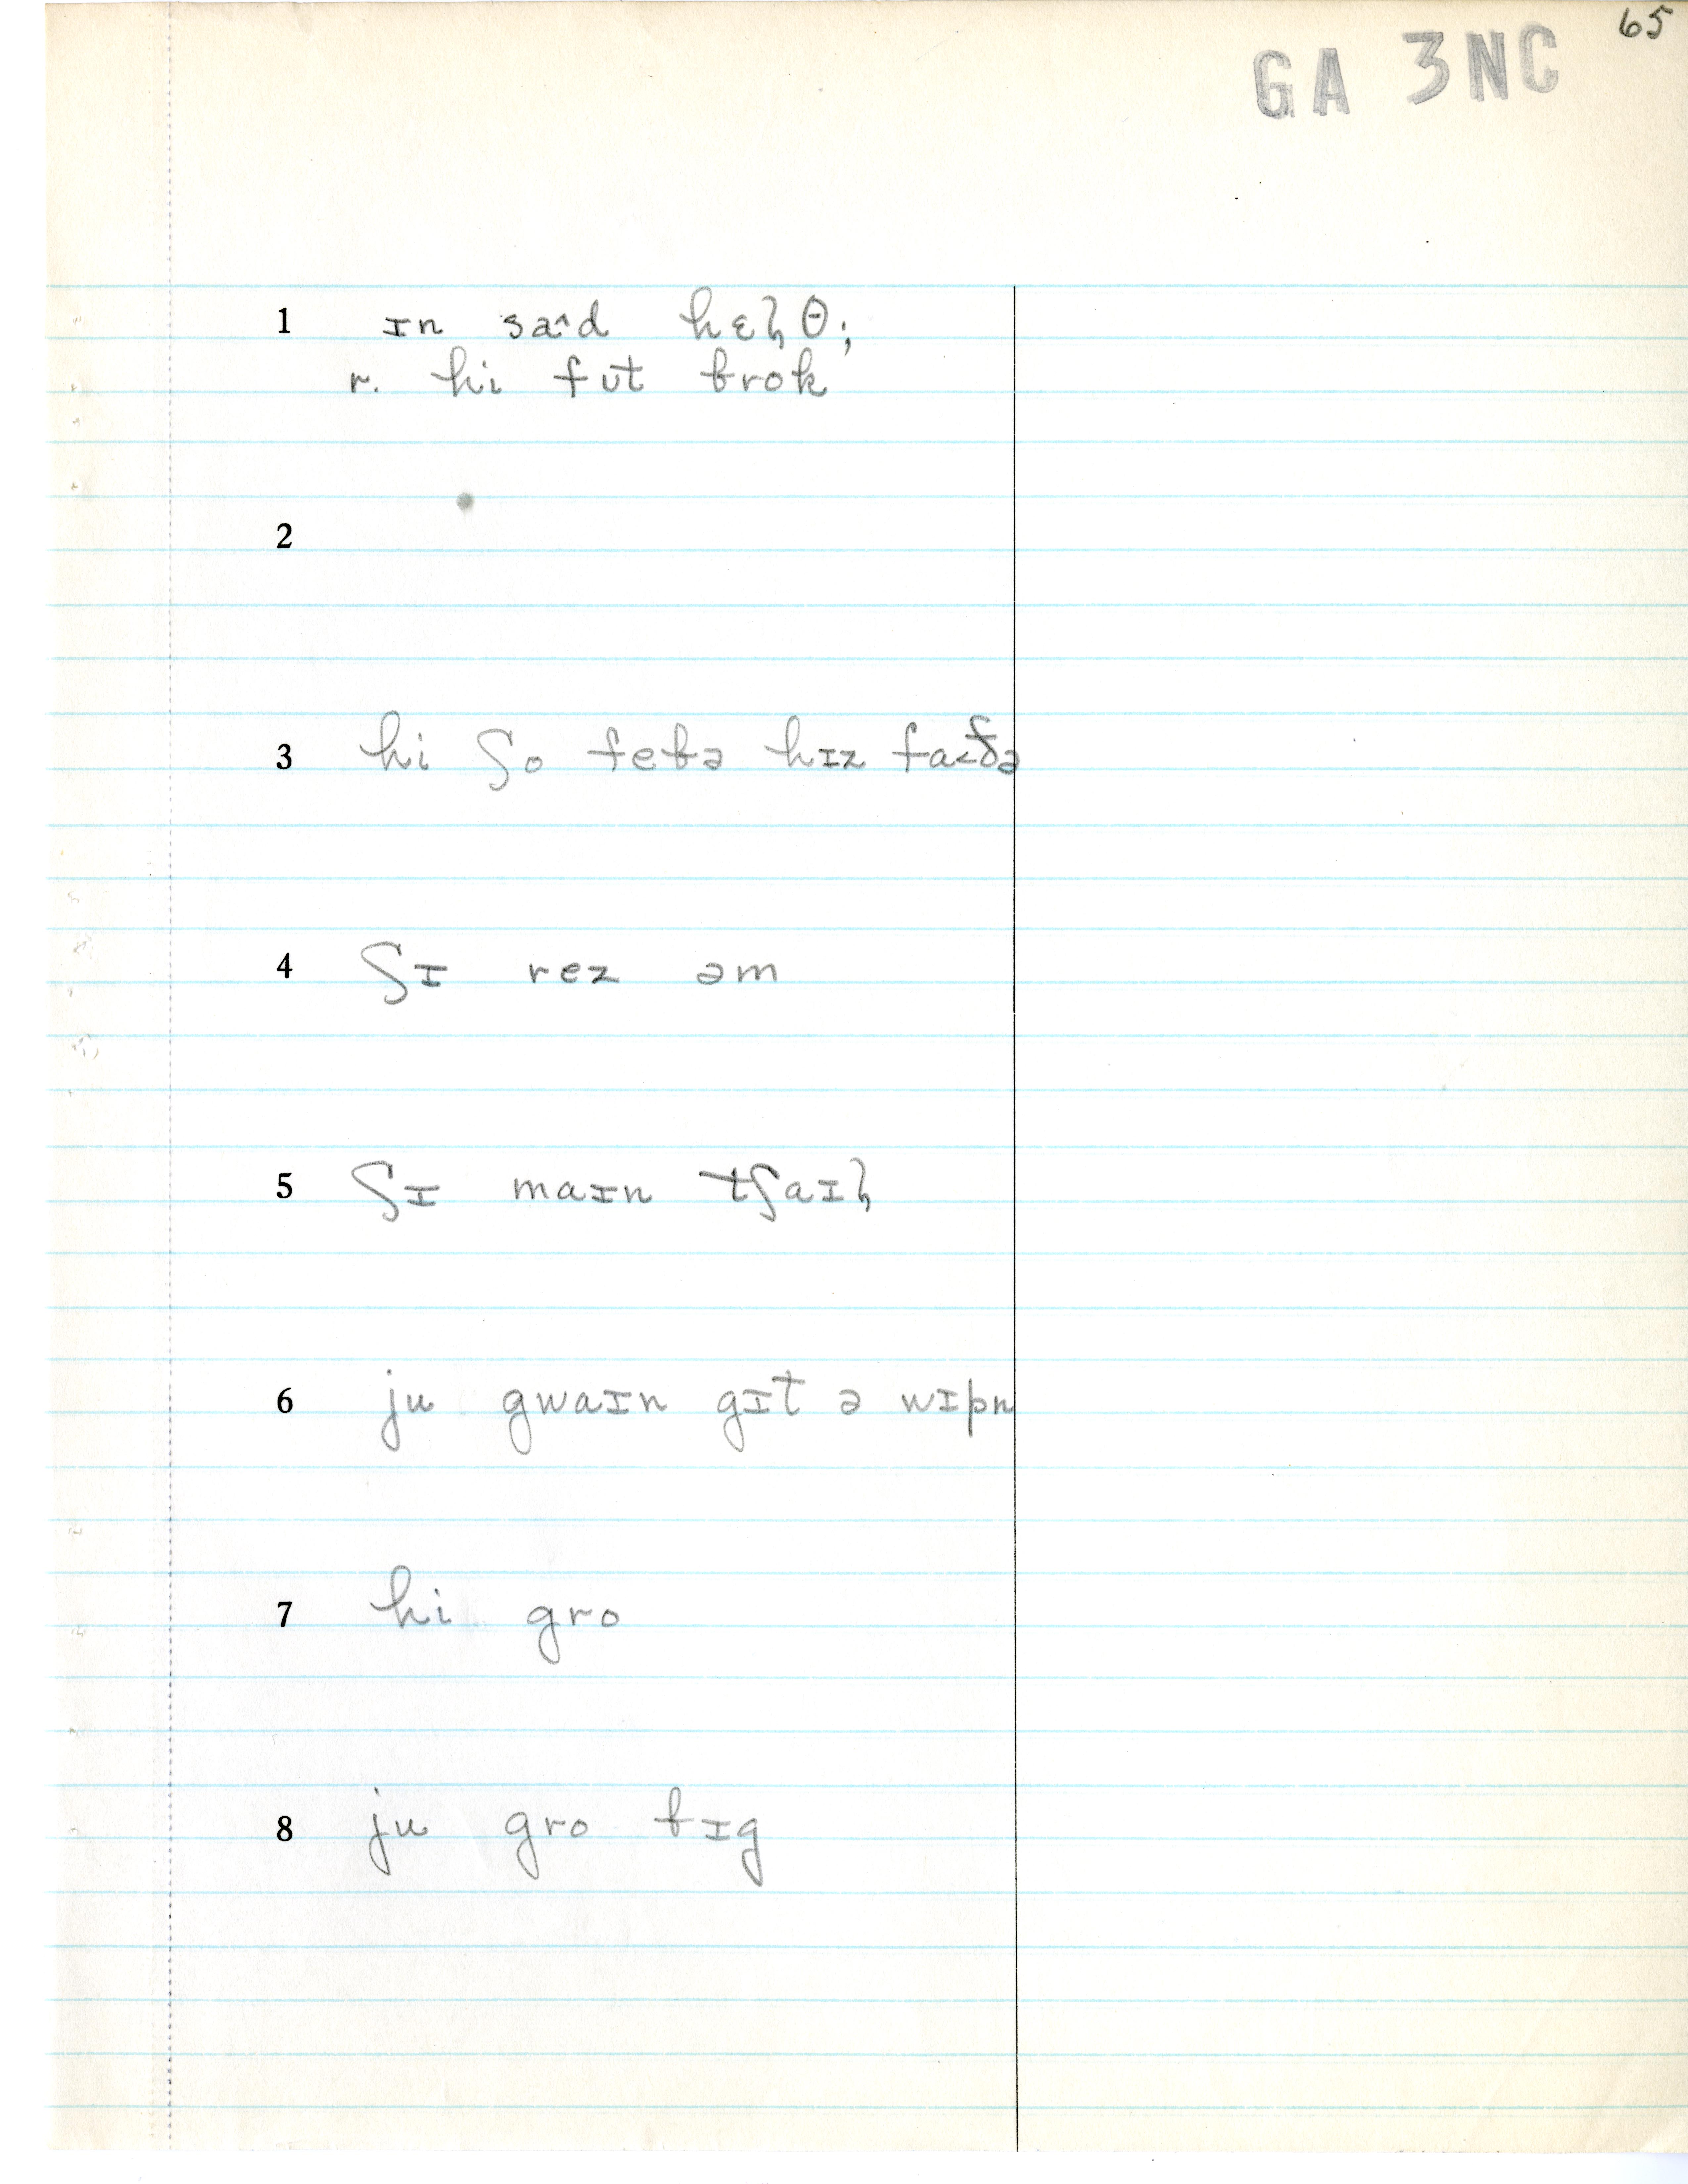 65
GA 3NC
1 ɪn saˆd hɛɭθ;
r. hi fʊt brok
2
3 hi ʃo febə hɪz fa˂ðə
4 ʃɪ rez əm
5 ʃɪ maɪn tʃaɪɭ
6 ju gwaɪn gɪt ə wɪpn
7 hi gro
8 ju gro bɪg